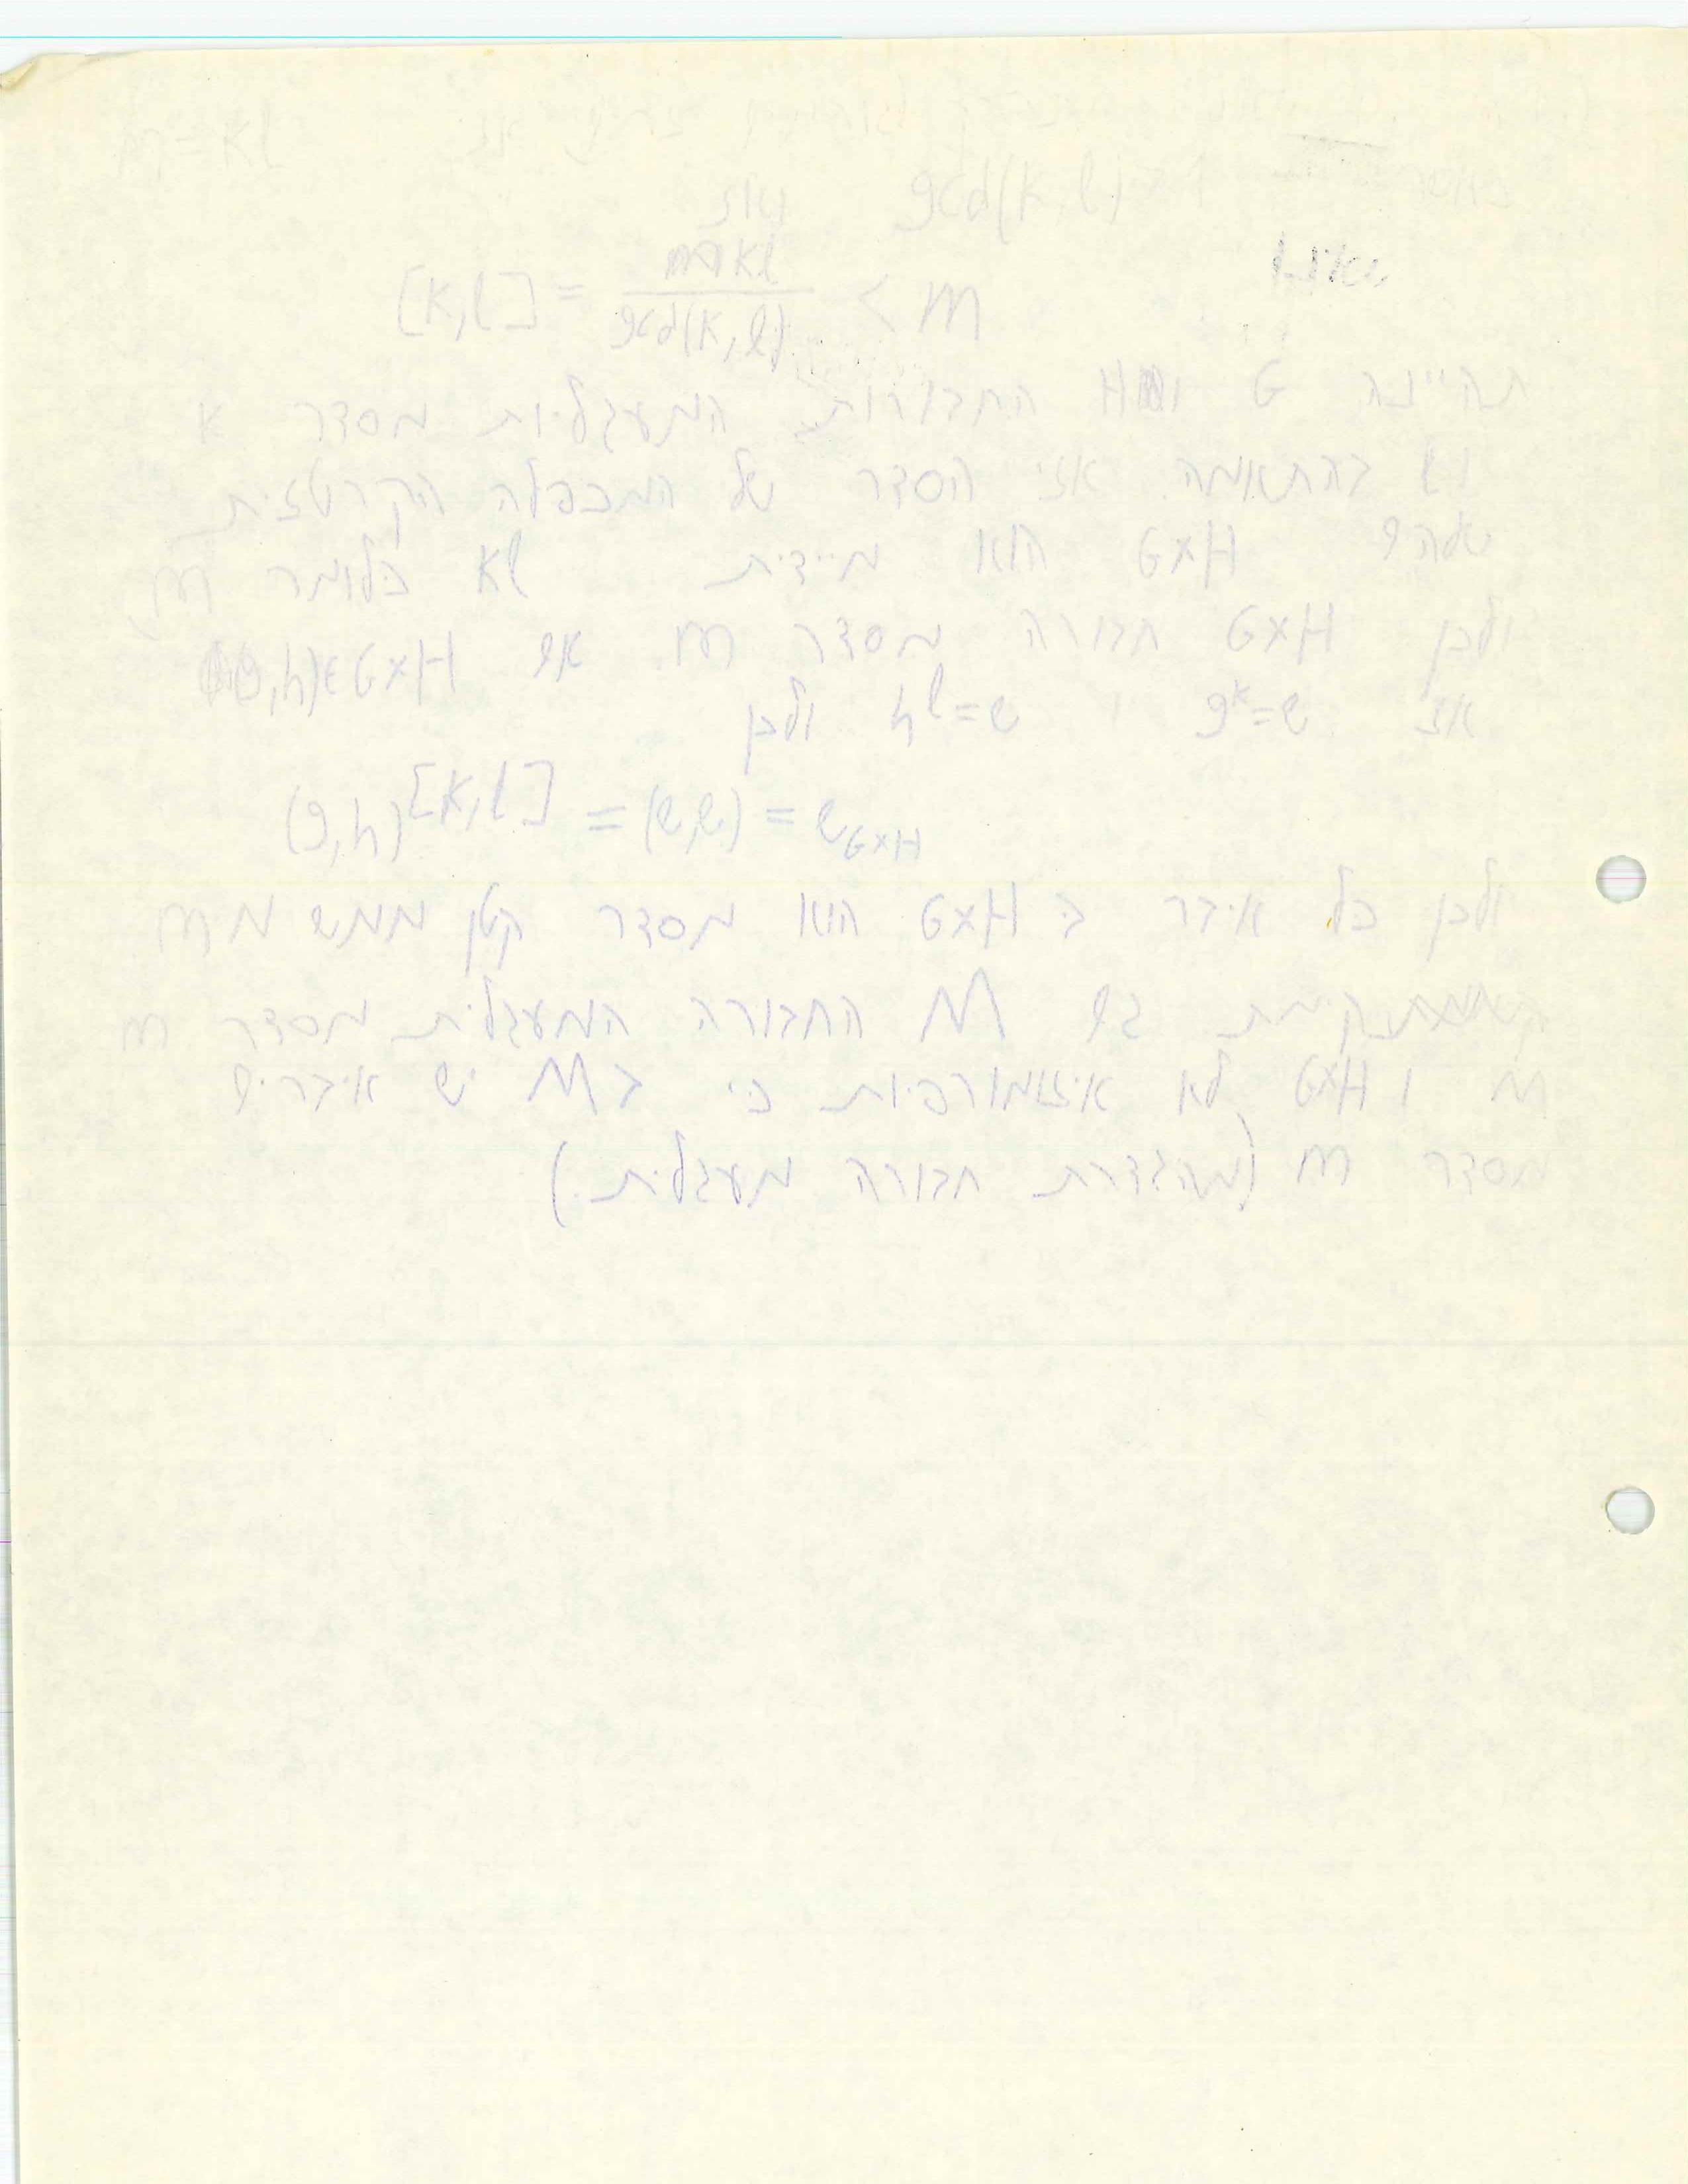 m=kl אזי
כאשר gcd(k,l) ואז
[k,l] = kl / gcd(k,l) < m
תהיינה G ו H החבורות המעגליות מסדר k
ו l בהתאמה. אזי הסדר של המכפלה הקרטזית
שלהם G×H הוא מיידית kl כלומר m
ולכן G×H חבורה מסדר m. אם (g,h)∈G×H
אז g^k=e ו h^l=e ולכן
(g,h)^[k,l] = (e,e) = e_G×H
ולכן כל איבר ב G×H הוא מסדר קטן ממש מ m
קיימת גם M החבורה המעגלית מסדר m
M ו G×H לא איזומורפיות כי ב M יש איברים
מסדר m (מהגדרת חבורה מעגלית.)